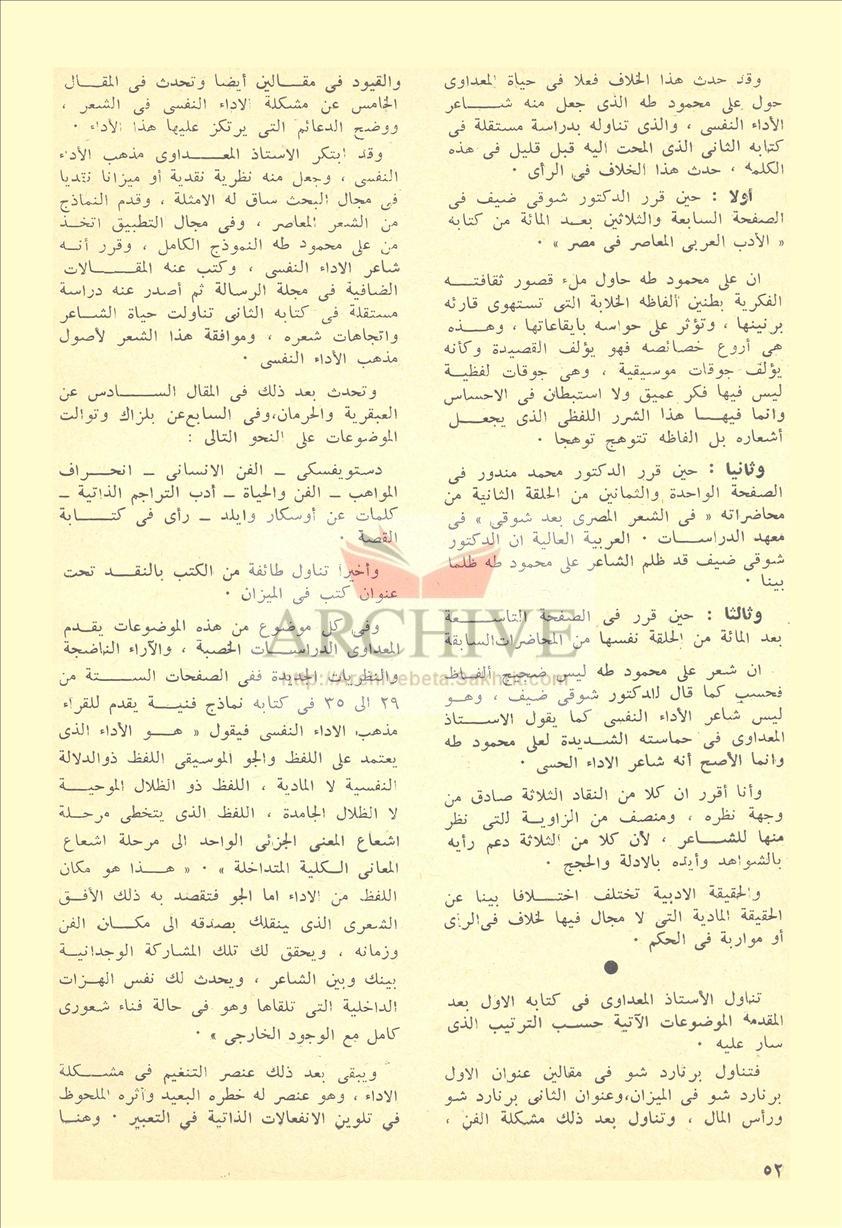 وقد حدث هذا الخلاف فعلا فى حياة المعداوى
حول على محمود طه الذى جعل منه شاعر
الأداء النفسى ، والذى تناوله بدراسة مستقلة فى
كتابه الثانى الذى المحت اليه قبل قليل فى هذه
الكلمه ، حدث هذا الخلاف فى الرأى ٠
أولا : حين قرر الدكتور شوقى ضيف فى
الصفحة السابعة والثلاثين بعد المائة من كتابه
« الأدب العربى المعاصر فى مصر » ٠
ان على محمود طه حاول ملء قصور ثقافته
الفكرية بطنين ألفاظه الخلابة التى تستهوى قارئه
برنينها ، وتؤثر على حواسه بايقاعاتها ، وهذه
هى أروع خصائصه فهو يؤلف القصيدة وكأنه
يؤلف جوقات موسيقية ، وهى جوقات لفظية
ليس فيها فكر عميق ولا استبطان فى الاحساس
وانما فيها هذا الشرر اللفظى الذى يجعل
أشعاره بل الفاظه تتوهج توهجا ٠
وثانيا : حين قرر الدكتور محمد مندور فى
الصفحة الواحدة والثمانين من الحلقة الثانية من
محاضراته « فى الشعر المصرى بعد شوقى » فى
معهد الدراسات ٠ العربية العالية ان الدكتور
شوقى ضيف قد ظلم الشاعر على محمود طه ظلما
بينا ٠
وثالثا : حين قرر فى الصفحة التاسعة
بعد المائة من الحلقة نفسها من المحاضرات السابقة
ان شعر على محمود طه ليس ضجيج ألفاظ
فحسب كما قال للدكتور شوقى ضيف ، وهو
ليس شاعر الأداء النفسى كما يقول الاستاذ
المعداوى فى حماسته الشديدة لعلى محمود طه
وانما الأصح أنه شاعر الاداء الحسى ٠
وأنا أقرر ان كلا من النقاد الثلاثة صادق من
وجهة نظره ، ومنصف من الزاوية للتى نظر
منها للشاعر ، لأن كلا من الثلاثة دعم رأيه
بالشواهد وأيده بالادلة والحجج ٠
والحقيقة الادبية تختلف اختلافا بينا عن
الحقيقة المادية التى لا مجال فيها لخلاف فى الرأى
أو مواربة فى الحكم ٠
●
تناول الأستاذ المعداوى فى كتابه الاول بعد
المقدمه الموضوعات الآتية حسب الترتيب الذى
سار عليه ٠
فتناول برنارد شو فى مقالين عنوان الاول
برنارد شو فى الميزان،وعنوان الثانى برنارد شو
ورأس المال ، وتناول بعد ذلك مشكلة الفن ،
والقيود فى مقالين أيضا وتحدث فى المقال
الخامس عن مشكلة الاداء النفسى فى الشعر ،
ووضح الدعائم التى يرتكز عليها هذا الأداء ٠
وقد ابتكر الاستاذ المعداوى مذهب الأداء
النفسى ، وجعل منه نظرية نقدية أو ميزانا نقديا
فى مجال البحث ساق له الامثلة ، وقدم النماذج
من الشعر المعاصر ، وفى مجال التطبيق اتخذ
من على محمود طه النموذج الكامل ، وقرر أنه
شاعر الاداء النفسى ، وكتب عنه المقالات
الضافية فى مجلة الرسالة ثم أصدر عنه دراسة
مستقلة فى كتابه الثانى تناولت حياة الشاعر
واتجاهات شعره ، وموافقة هذا الشعر لأصول
مذهب الأداء النفسى ٠
وتحدث بعد ذلك فى المقال السادس عن
العبقرية والحرمان،وفى السابع عن بلزاك وتوالت
الموضوعات على النحو التالى :
دستويفسكى – الفن الانسانى – انحراف
المواهب – الفن والحياة – أدب التراجم الذاتية –
كلمات عن أوسكار وايلد – رأى فى كتابة
القصة ٠
وأخيرا تناول طائفة من الكتب بالنقد تحت
عنوان كتب فى الميزان ٠
وفى كل موضوع من هذه الموضوعات يقدم
المعداوى الدراسات الخصبة ، والآراء الناضجة
والنظريات الجديدة ففى الصفحات الستة من
٢٩ الى ٣٥ فى كتابه نماذج فنية يقدم للقراء
مذهب الاداء النفسى فيقول « هو الأداء الذى
يعتمد على اللفظ والجو الموسيقى اللفظ ذو الدلالة
النفسية لا المادية ، اللفظ ذو الظلال الموحية
لا الظلال الجامدة ، اللفظ الذى يتخطى مرحلة
اشعاع المعنى الجزئى الواحد الى مرحلة اشعاع
المعانى الكلية المتداخلة » ٠ « هذا هو مكان
اللفظ من الاداء اما الجو فتقصد به ذلك الأفق
الشعرى الذى ينقلك بصدقه الى مكان الفن
وزمانه ، ويحقق لك تلك المشاركة الوجدانية
بينك وبين الشاعر ، ويحدث لك نفس الهزات
الداخلية التى تلقاها وهو فى حالة فناء شعورى
كامل مع الوجود الخارجى » ٠
ويبقى بعد ذلك عنصر التنغيم فى مشكلة
الاداء ، وهو عنصر له خطره البعيد وأثره الملحوظ
فى تلوين الانفعالات الذاتية في التعبير ٠ وهنا
٥٢
ARCHIVE
http://Archivebeta.Sakhrit.com